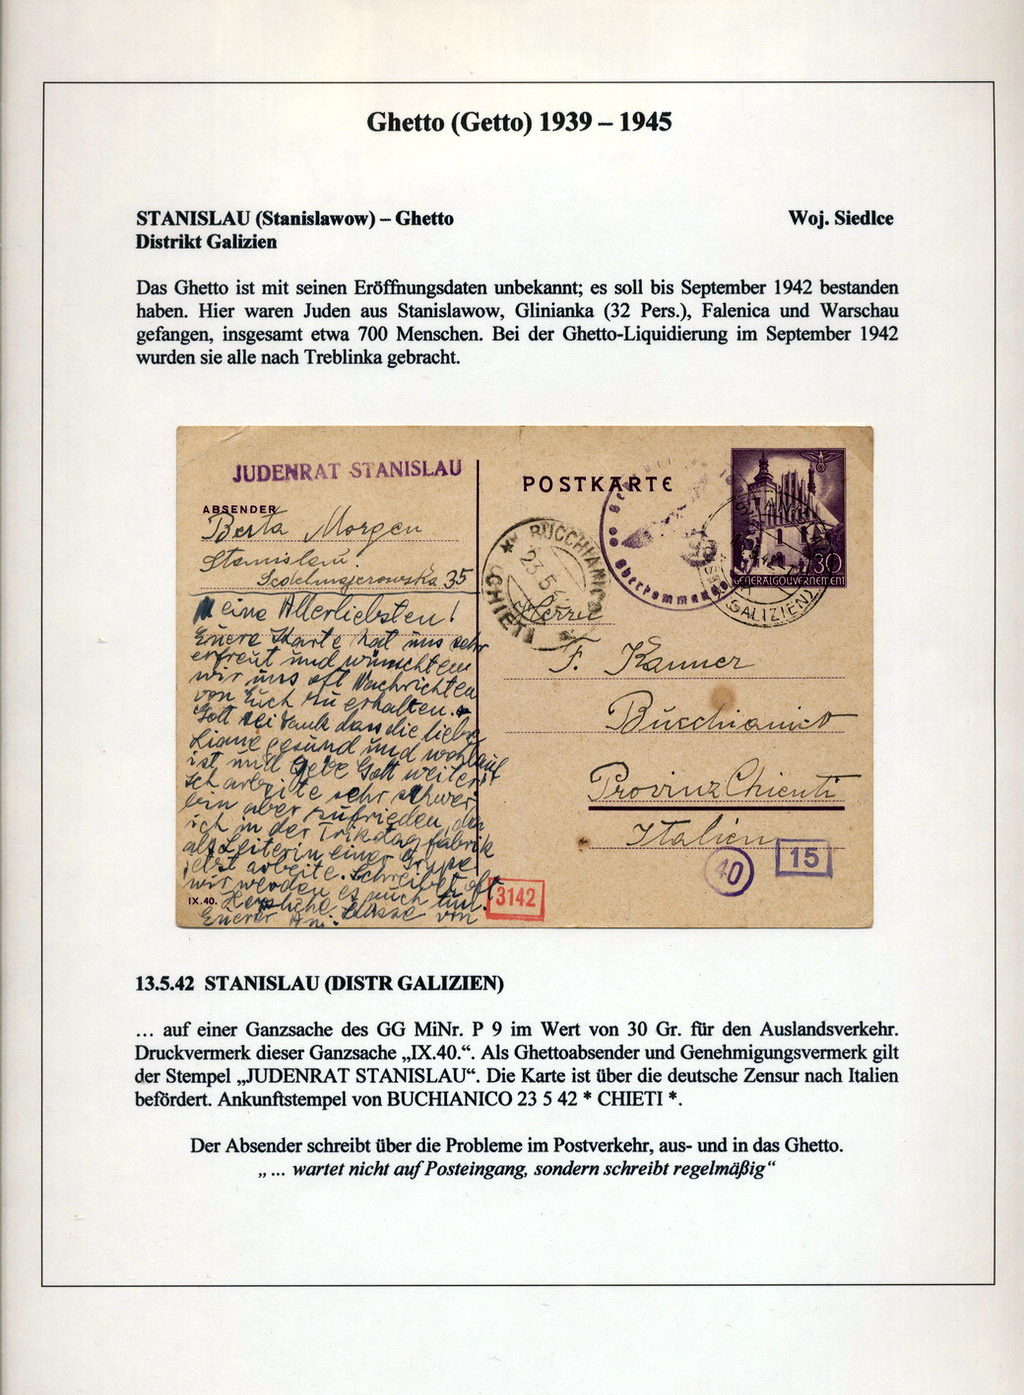 Ghetto (Getto) 1939 – 1945
STANISLAU (Stanislawow) – Ghetto
Woj. Siedlce
Distrikt Galizien
Das Ghetto ist mit seinen Eröffnungsdaten unbekannt; es soll bis September 1942 bestanden
haben. Hier waren Juden aus Stanislawow, Glinianka (32 Pers.), Falenica und Warschau
gefangen, insgesamt etwa 700 Menschen. Bei der Ghetto-Liquidierung im September 1942
wurden sie alle nach Treblinka gebracht.
JUDENRAT STANISLAU
ABSENDER
Berta Morgen
Stanislau
35
Meine Allerliebsten!
Euere Karte hat uns sehr
erfreut und wünschten
wir uns oft Nachrichten
von Euch zu erhalten.
Gott sei Dank dass die liebe
Liane gesund und wohlauf
ist und gebe Gott weiter
Ich arbeite sehr schwer
bin aber zufrieden, da
ich in der Trikotagfabrik
als Leiterin einer Gruppe
jetzt arbeite. Schreibet oft
wir werden es auch tun.
Herzliche Küsse von
Euerer
IX.40.
3142
POSTKARTE
BUCCHIANICO
23.5
CHIETI
Oberkommando
30
GENERALGOUVERNEMENT
GALIZIEN
Herrn
F. Kanner
Bucchianico
Provinz Chienti
Italien
40
15
13.5.42 STANISLAU (DISTR GALIZIEN)
... auf einer Ganzsache des GG MiNr. P 9 im Wert von 30 Gr. für den Auslandsverkehr.
Druckvermerk dieser Ganzsache „IX.40.“. Als Ghettoabsender und Genehmigungsvermerk gilt
der Stempel „JUDENRAT STANISLAU“. Die Karte ist über die deutsche Zensur nach Italien
befördert. Ankunftstempel von BUCHIANICO 23 5 42 * CHIETI *.
Der Absender schreibt über die Probleme im Postverkehr, aus- und in das Ghetto.
„ ... wartet nicht auf Posteingang, sondern schreibt regelmäßig“